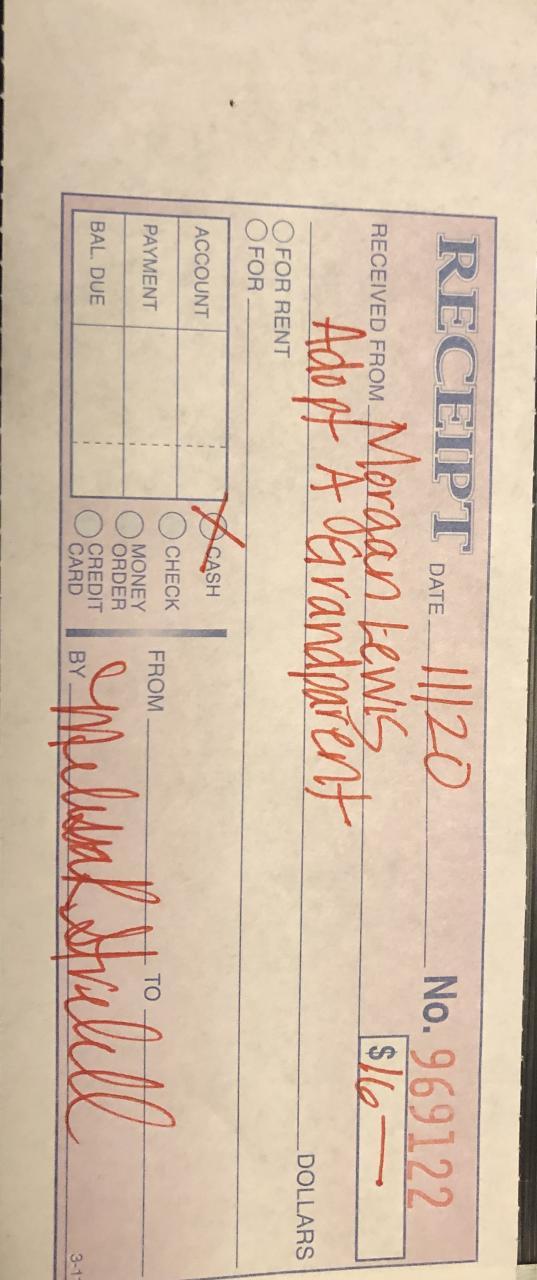 RECEIPT DATE 11/20 No. 969122
RECEIVED FROM Morgan Lewis $16—
Adopt A Grandparent DOLLARS
FOR RENT
FOR
ACCOUNT CASH
PAYMENT CHECK FROM TO
MONEY ORDER
BAL. DUE CREDIT CARD BY
3-11